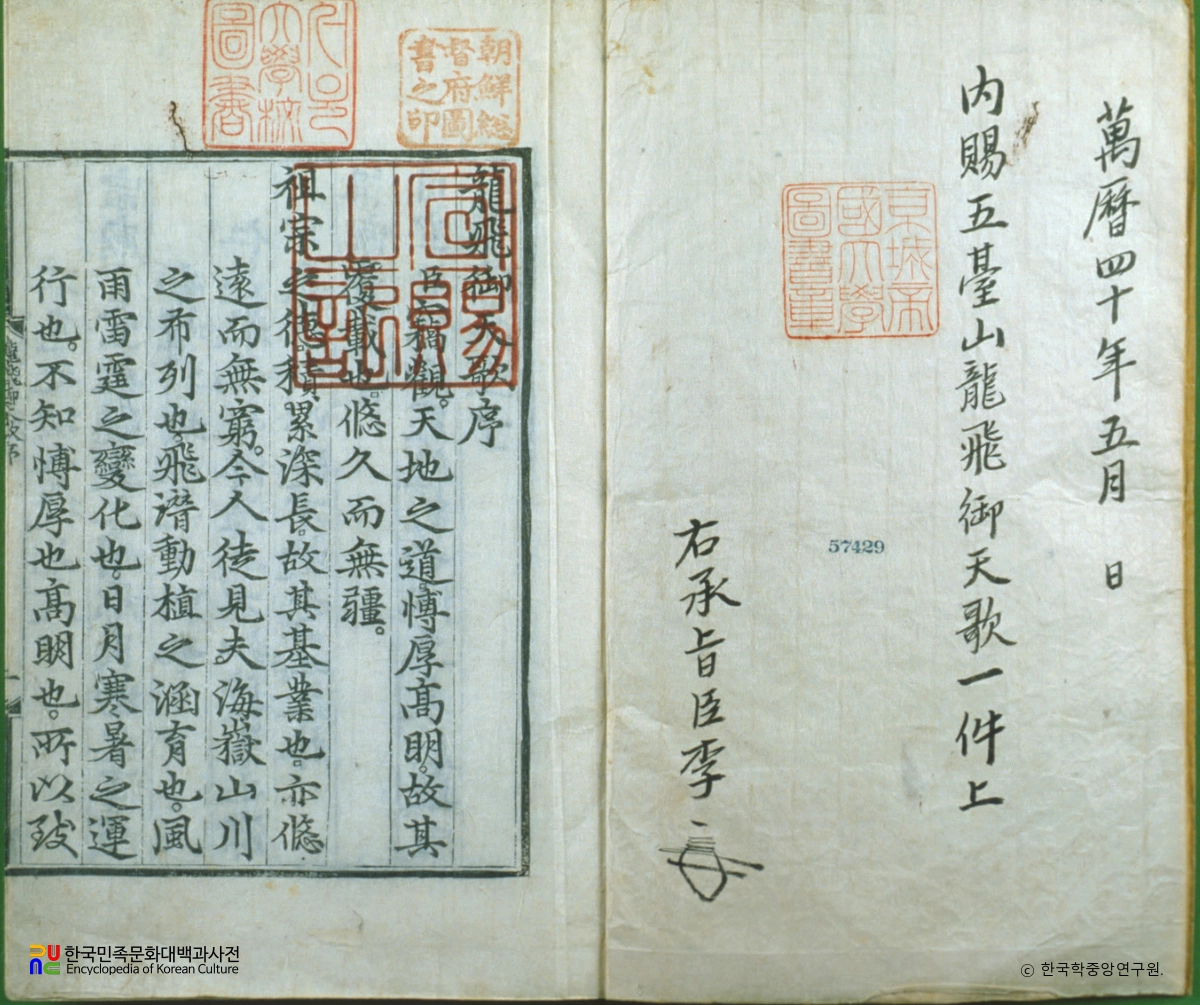 萬曆四十年五月 日
內賜五臺山龍飛御天歌一件上
右承旨臣李
京城帝
國大學
圖書章
57429
朝鮮總
督府圖
書之印
大學校
圖書
龍飛御天歌序
臣竊觀。天地之道。博厚高明。故其
覆載也。悠久而無疆。
祖宗之德。積累深長。故其基業也。亦悠
遠而無窮。今人徒見夫海嶽山川
之布列也。飛潛動植之涵育也。風
雨雷霆之變化也。日月寒暑之運
行也。不知博厚也高明也。所以致
한국민족문화대백과사전
Encyclopedia of Korean Culture
© 한국학중앙연구원.